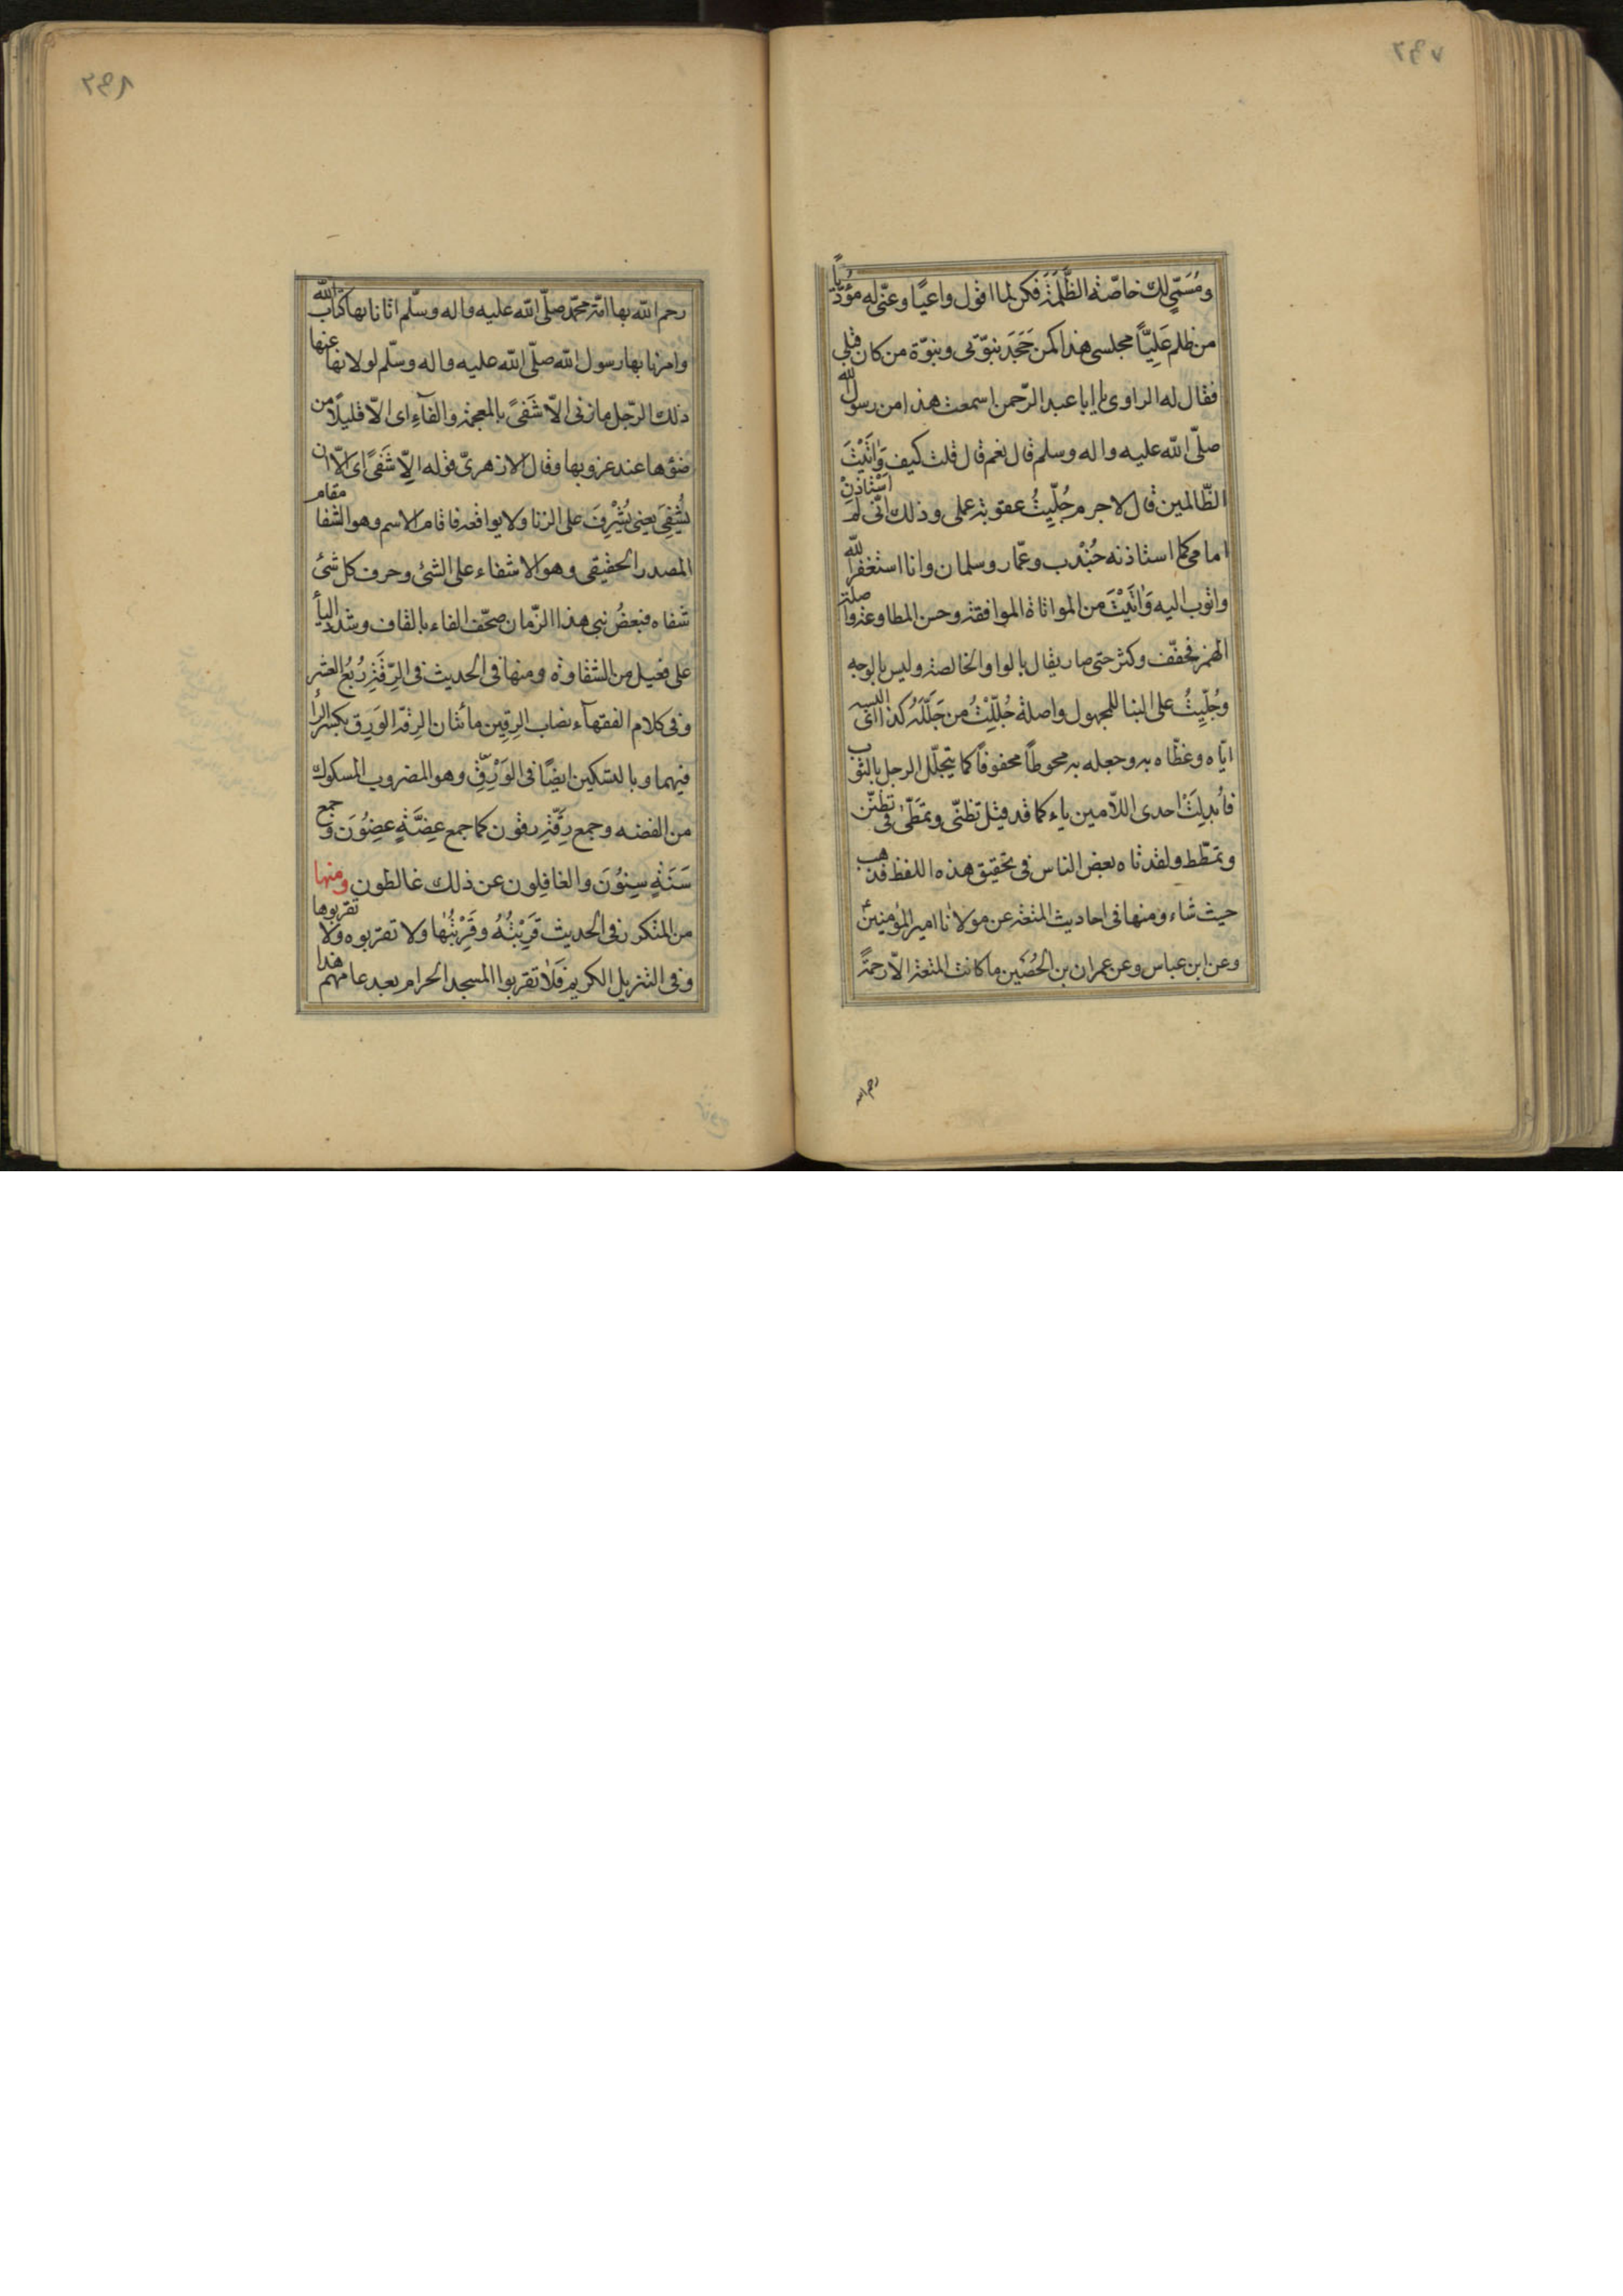 ومُسَمّي لك خاصّة الظَّلَمَة فكن لما اقول واعيًا وعنّي له مؤدّياً
من ظلم عَلِيّاً مجلسي هذا كمن جَحَدَ بنبوّتي ونبوّة من كان قبلي
فقال له الراوي يا ابا عبد الرّحمن اسمعت هذا من رسول الله
صلّى الله عليه واله وسلم قال نعم قال قلت كيف وَاتَيْتَ
الظّالمين قال لا جرم جُلِّيتُ عقوبة عملي وذلك انّي لم استأذن
امامي كما استاذنه جُنْدب وعمّار وسلمان وانا استغفر الله
واتوب اليه وَاتَيْتَ من المواتاة الموافقة وحسن المطاوعة واصلة
الهمز فخفّف وكثر حتى صار يقال بالواو الخالصة وليس بالوجه
وجُلِّيتُ على البنا للمجهول واصلة جُلِّلْتُ من جَلَّلَهُ كذا اي البسه
ايّاه وغطّاه به وجعله به محوطاً محفوفاً كما يتجلّل الرجل بالثوب
فاُبدِلَتْ احدى اللاّمين ياء كما قد قيل تظنّى وتمطّى في تظنّن
وتمطّط ولقد تاه بعض الناس في تحقيق هذه اللفظ فذهب
حيث شاء ومنها في احاديث المتعة عن مولانا امير المؤمنين
وعن ابن عباس وعن عمران بن الحُصَين ما كانت المتعة الاّ رحمةً
رحم الله
رحم الله بها امّة محمّد صلّى الله عليه واله وسلّم اتانا بها كتاب الله
وامرنا بها رسول الله صلّى الله عليه واله وسلّم لولا نها عنها
ذلك الرّجل ما زنى الاّ شَفىً بالمعجمة والفآء اي الاّ قليلاً من
ضوؤها عند غروبها وقال الازهريّ قوله الاّ شَفىً اي الاّ ان
يُشْفِيَ يعني يُشْرِفَ على الزنا ولا يواقعه فاقام الاسم وهو الشفا مقام
المصدر الحقيقي وهو الاشفاء على الشئ وحرف كل شئ
شفاه فبعضُ بني هذا الزّمان صحّف الفاء بالقاف وشدد اليأ
على فعيل من الشقاوة ومنها في الحديث في الرِّقَةِ رُبُعُ العشر
وفي كلام الفقهآء نصاب الرِقِين مائتان الرِقة الوَرِق بكسر الرأ
فيهما وبالتسكين ايضًا في الوَرِقّ وهو المضروب المسكوك
من الفضه وجمع رِقَّةٍ رقون كما جمع عِضَّةٍ عِضُوَن وجمع
سَنَةٍ سِنوُنَ والغافِلون عن ذلك غالطون ومنها
من المتكرر في الحديث قَرِبْتُهُ وقَرِبْتُها ولا تقربوه ولا تقربوها
وفي التنزيل الكريم فَلاَ تقربوا المسجد الحرام بعد عامهم هذا